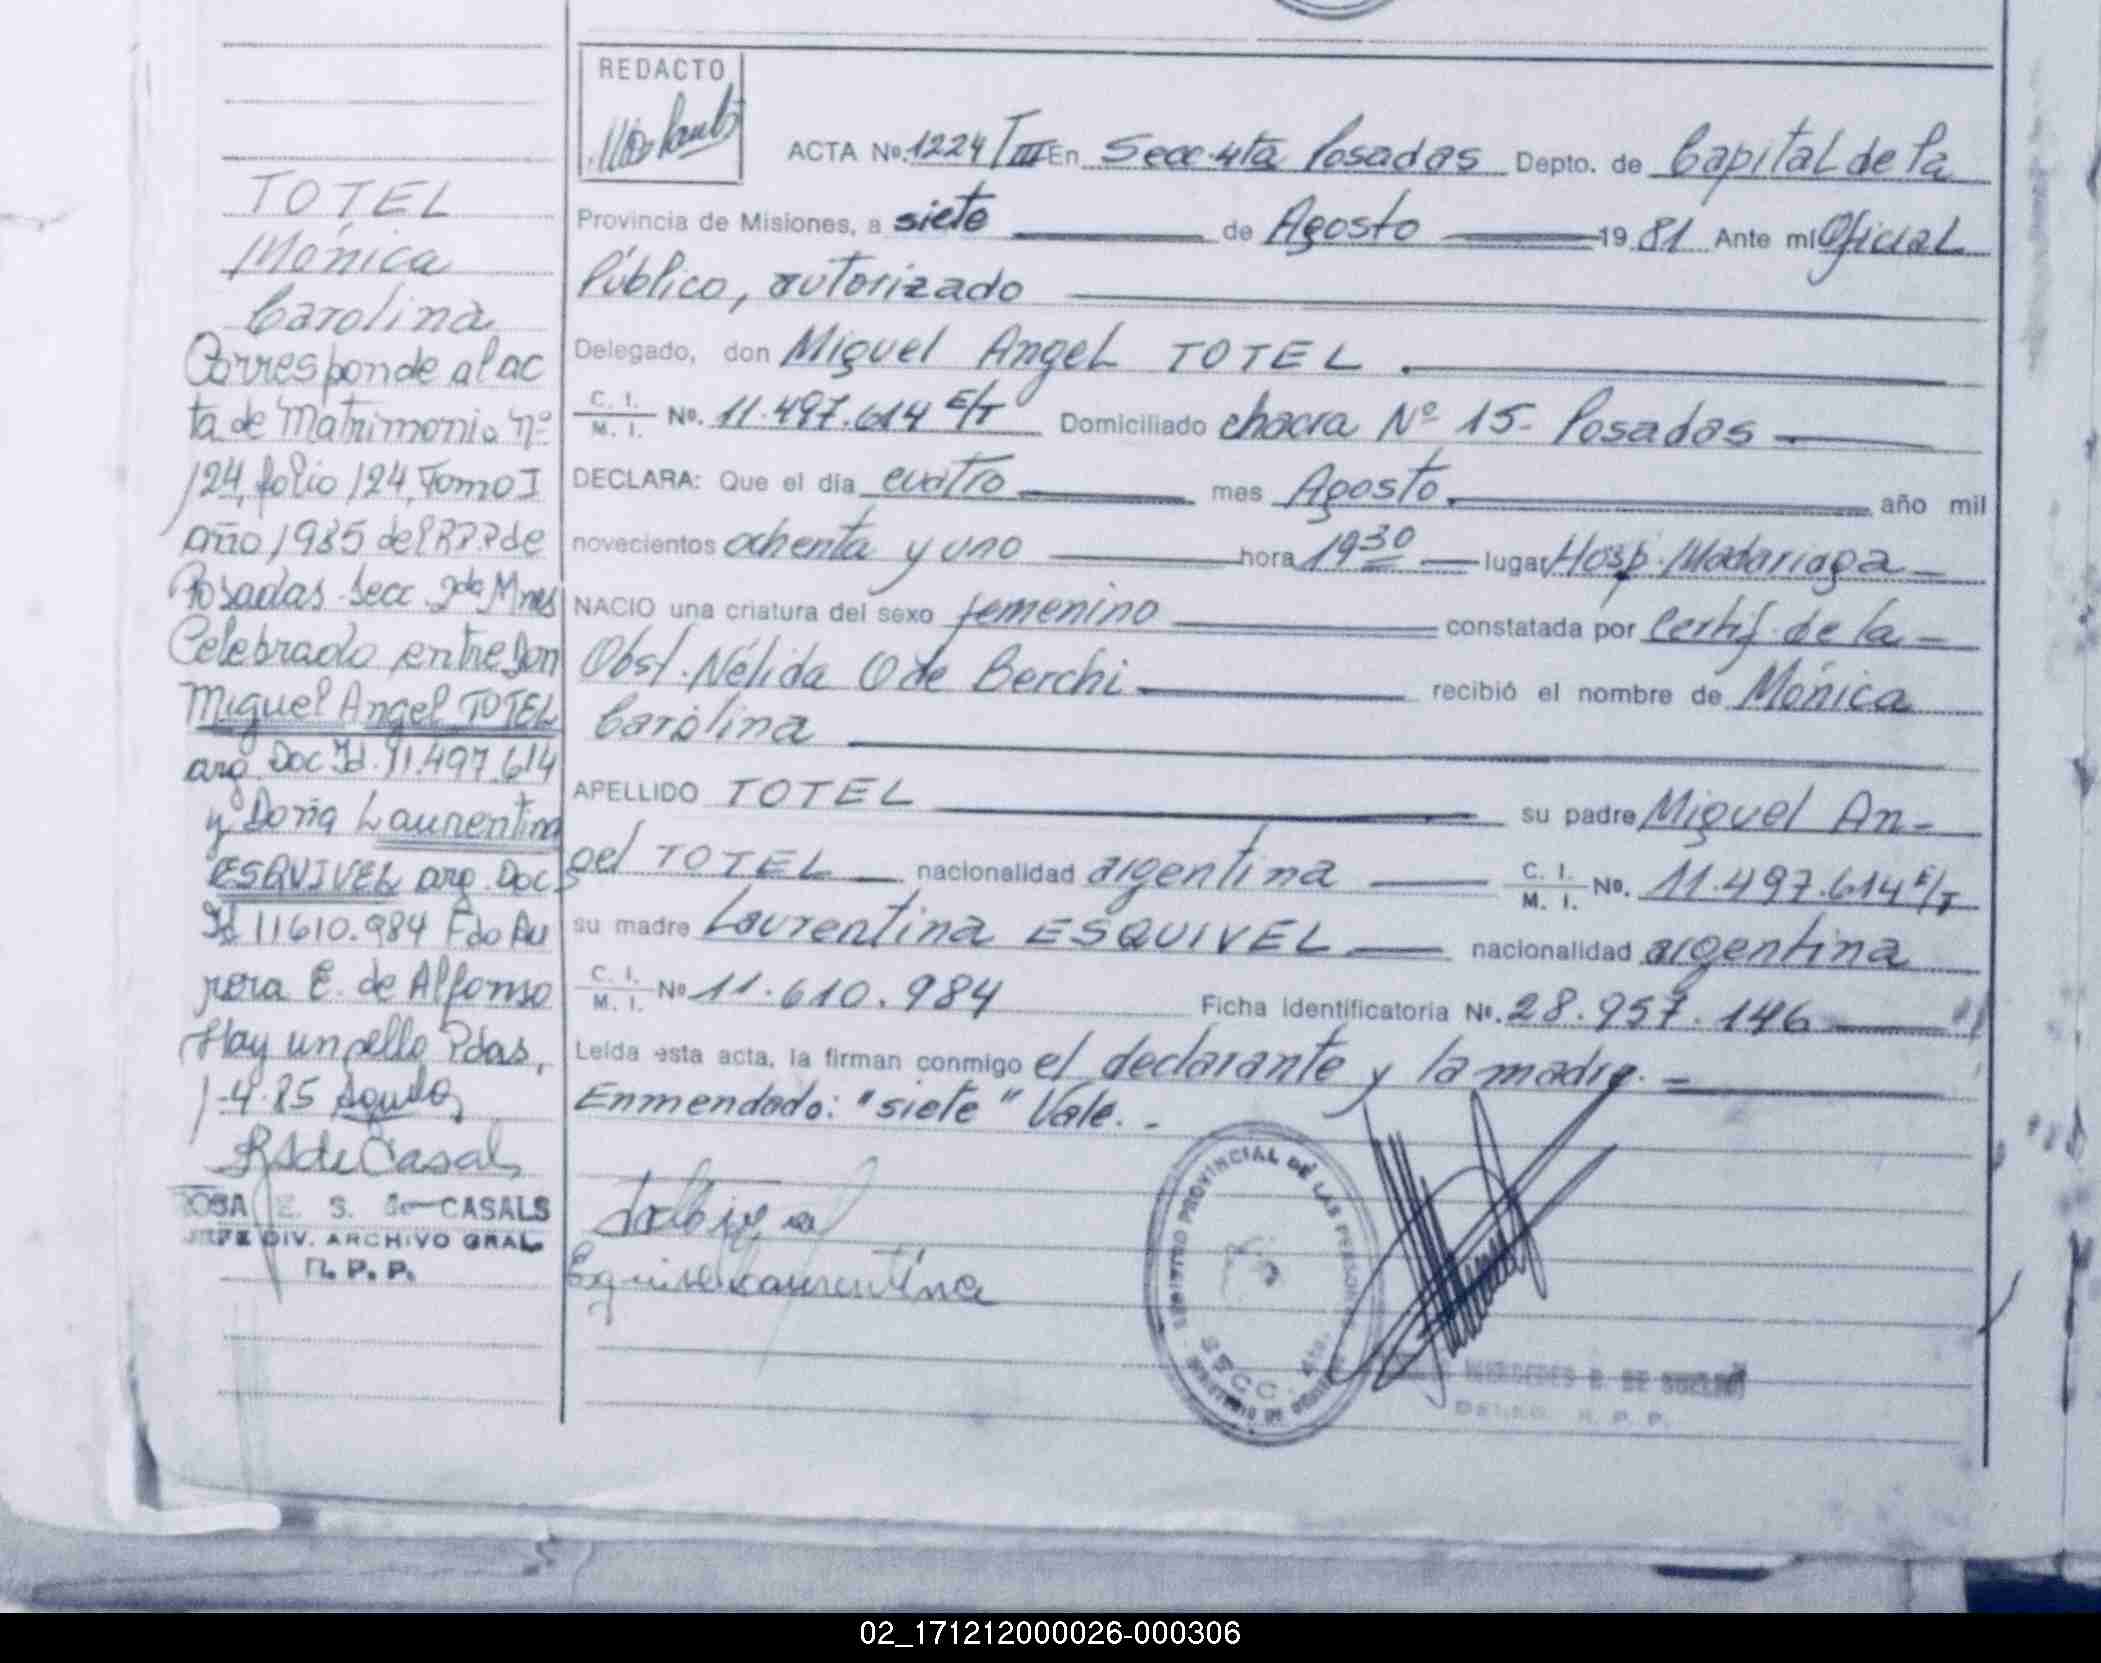 TOTEL
Mónica
Carolina
Corresponde al ac
ta de Matrimonio nº
124, folio 124, Tomo I
año 1985 del R.P.P. de
Posadas Secc 2da Mnes
Celebrado entre Don
Miguel Angel TOTEL
arg. Doc Id. 11.497.614
y Doña Laurentina
ESQUIVEL arg. Doc
Id 11610.984 Fdo Au
rora E. de Alfonso
Hay un sello Pdas,
1-4-85
RSde Casals
ROSA E. S. de CASALS
JEFE DIV. ARCHIVO GRAL.
R. P. P.
REDACTO
ACTA Nº. 1224 T III En Secc. 4ta Posadas Depto. de Capital de la
Provincia de Misiones, a siete de Agosto 19 81 Ante mi Oficial
Público, autorizado
Delegado, don Miguel Angel TOTEL.
C. I. M. I. Nº. 11.497.614 E/T Domiciliado chacra Nº 15- Posadas
DECLARA: Que el día cuatro mes Agosto. año mil
novecientos ochenta y uno hora 19 30 lugar Hosp. Madariaga
NACIO una criatura del sexo femenino constatada por Certif. de la
Obst. Nélida O de Berchi recibió el nombre de Mónica
Carolina
APELLIDO TOTEL su padre Miguel An-
gel TOTEL nacionalidad argentina C. I. M. I. Nº. 11.497.614 E/T
su madre Laurentina ESQUIVEL nacionalidad argentina
C. I. M. I. Nº 11.610.984 Ficha identificatoria Nº. 28.957.146
Leída esta acta, la firman conmigo el declarante y la madre.
Enmendado: "siete" Vale.-
Esquivel Laurentina
REGISTRO PROVINCIAL DE LAS PERSONAS
SECC. 4ta.
MINISTERIO DE GOBIERNO
MERCEDES
DELEG. R. P. P.
02_171212000026-000306